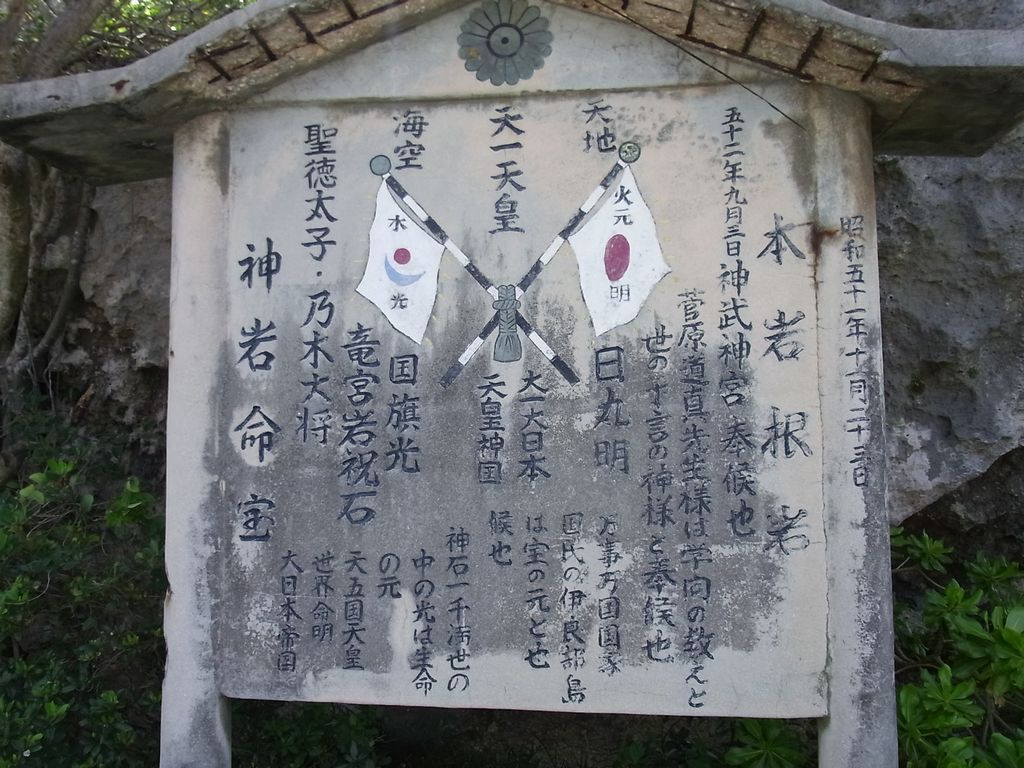 昭和五十一年十一月二十三日
本岩根岩
五十二年九月三日神武神宮奉候也
菅原道真先生様は学向の教えと
世の十言の神様と奉候也
天地
火元
明
日丸明
万事万国国家
国氏の伊良部島
は宝の元と也
候也
天一天皇
大一大日本
天皇神国
海空
水
光
国旗光
竜宮岩祝石
聖徳太子・乃木大将
神石一千満世の
中の光は生命
の元
天五国天皇
世界命明
大日本帝国
神岩命宝